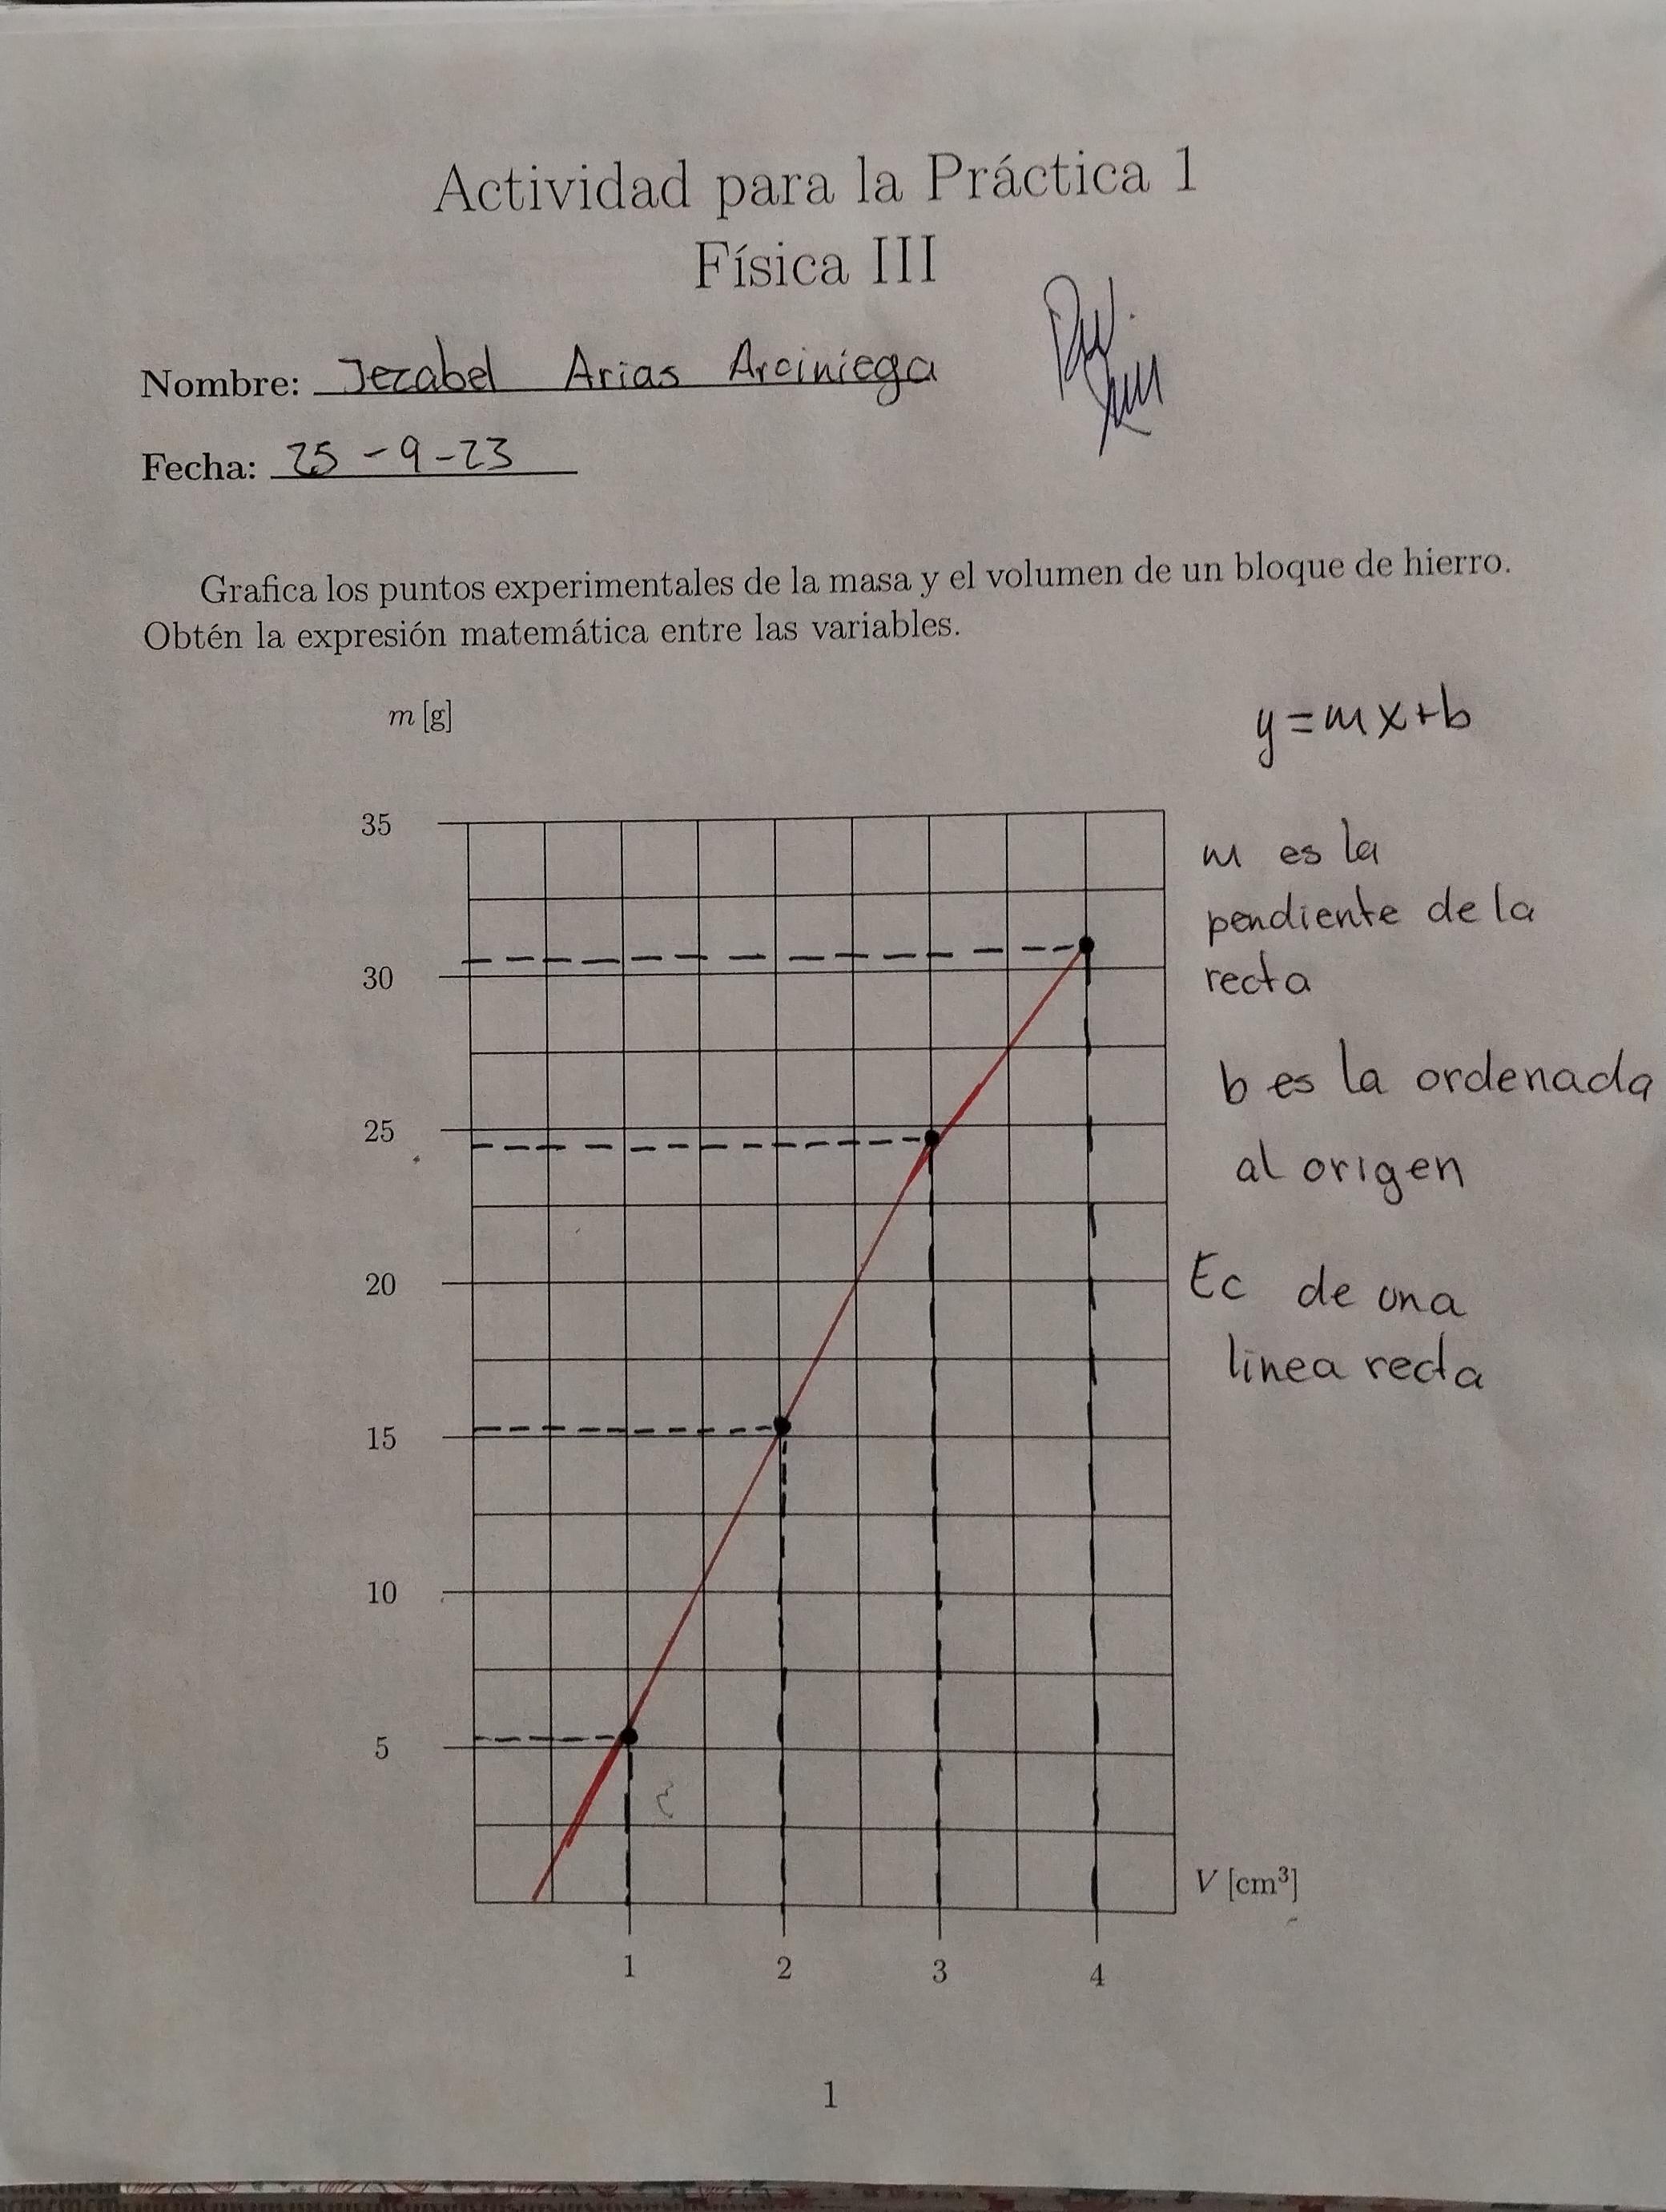 Actividad para la Práctica 1
Física III
Nombre: Jezabel Arias Arciniega
Fecha: 25-9-23
Grafica los puntos experimentales de la masa y el volumen de un bloque de hierro.
Obtén la expresión matemática entre las variables.
m [g]
y = mx+b
35
m es la
pendiente de la
30
recta
b es la ordenada
25
al origen
20
Ec de una
linea recta
15
10
5
V [cm³]
1 2 3 4
1